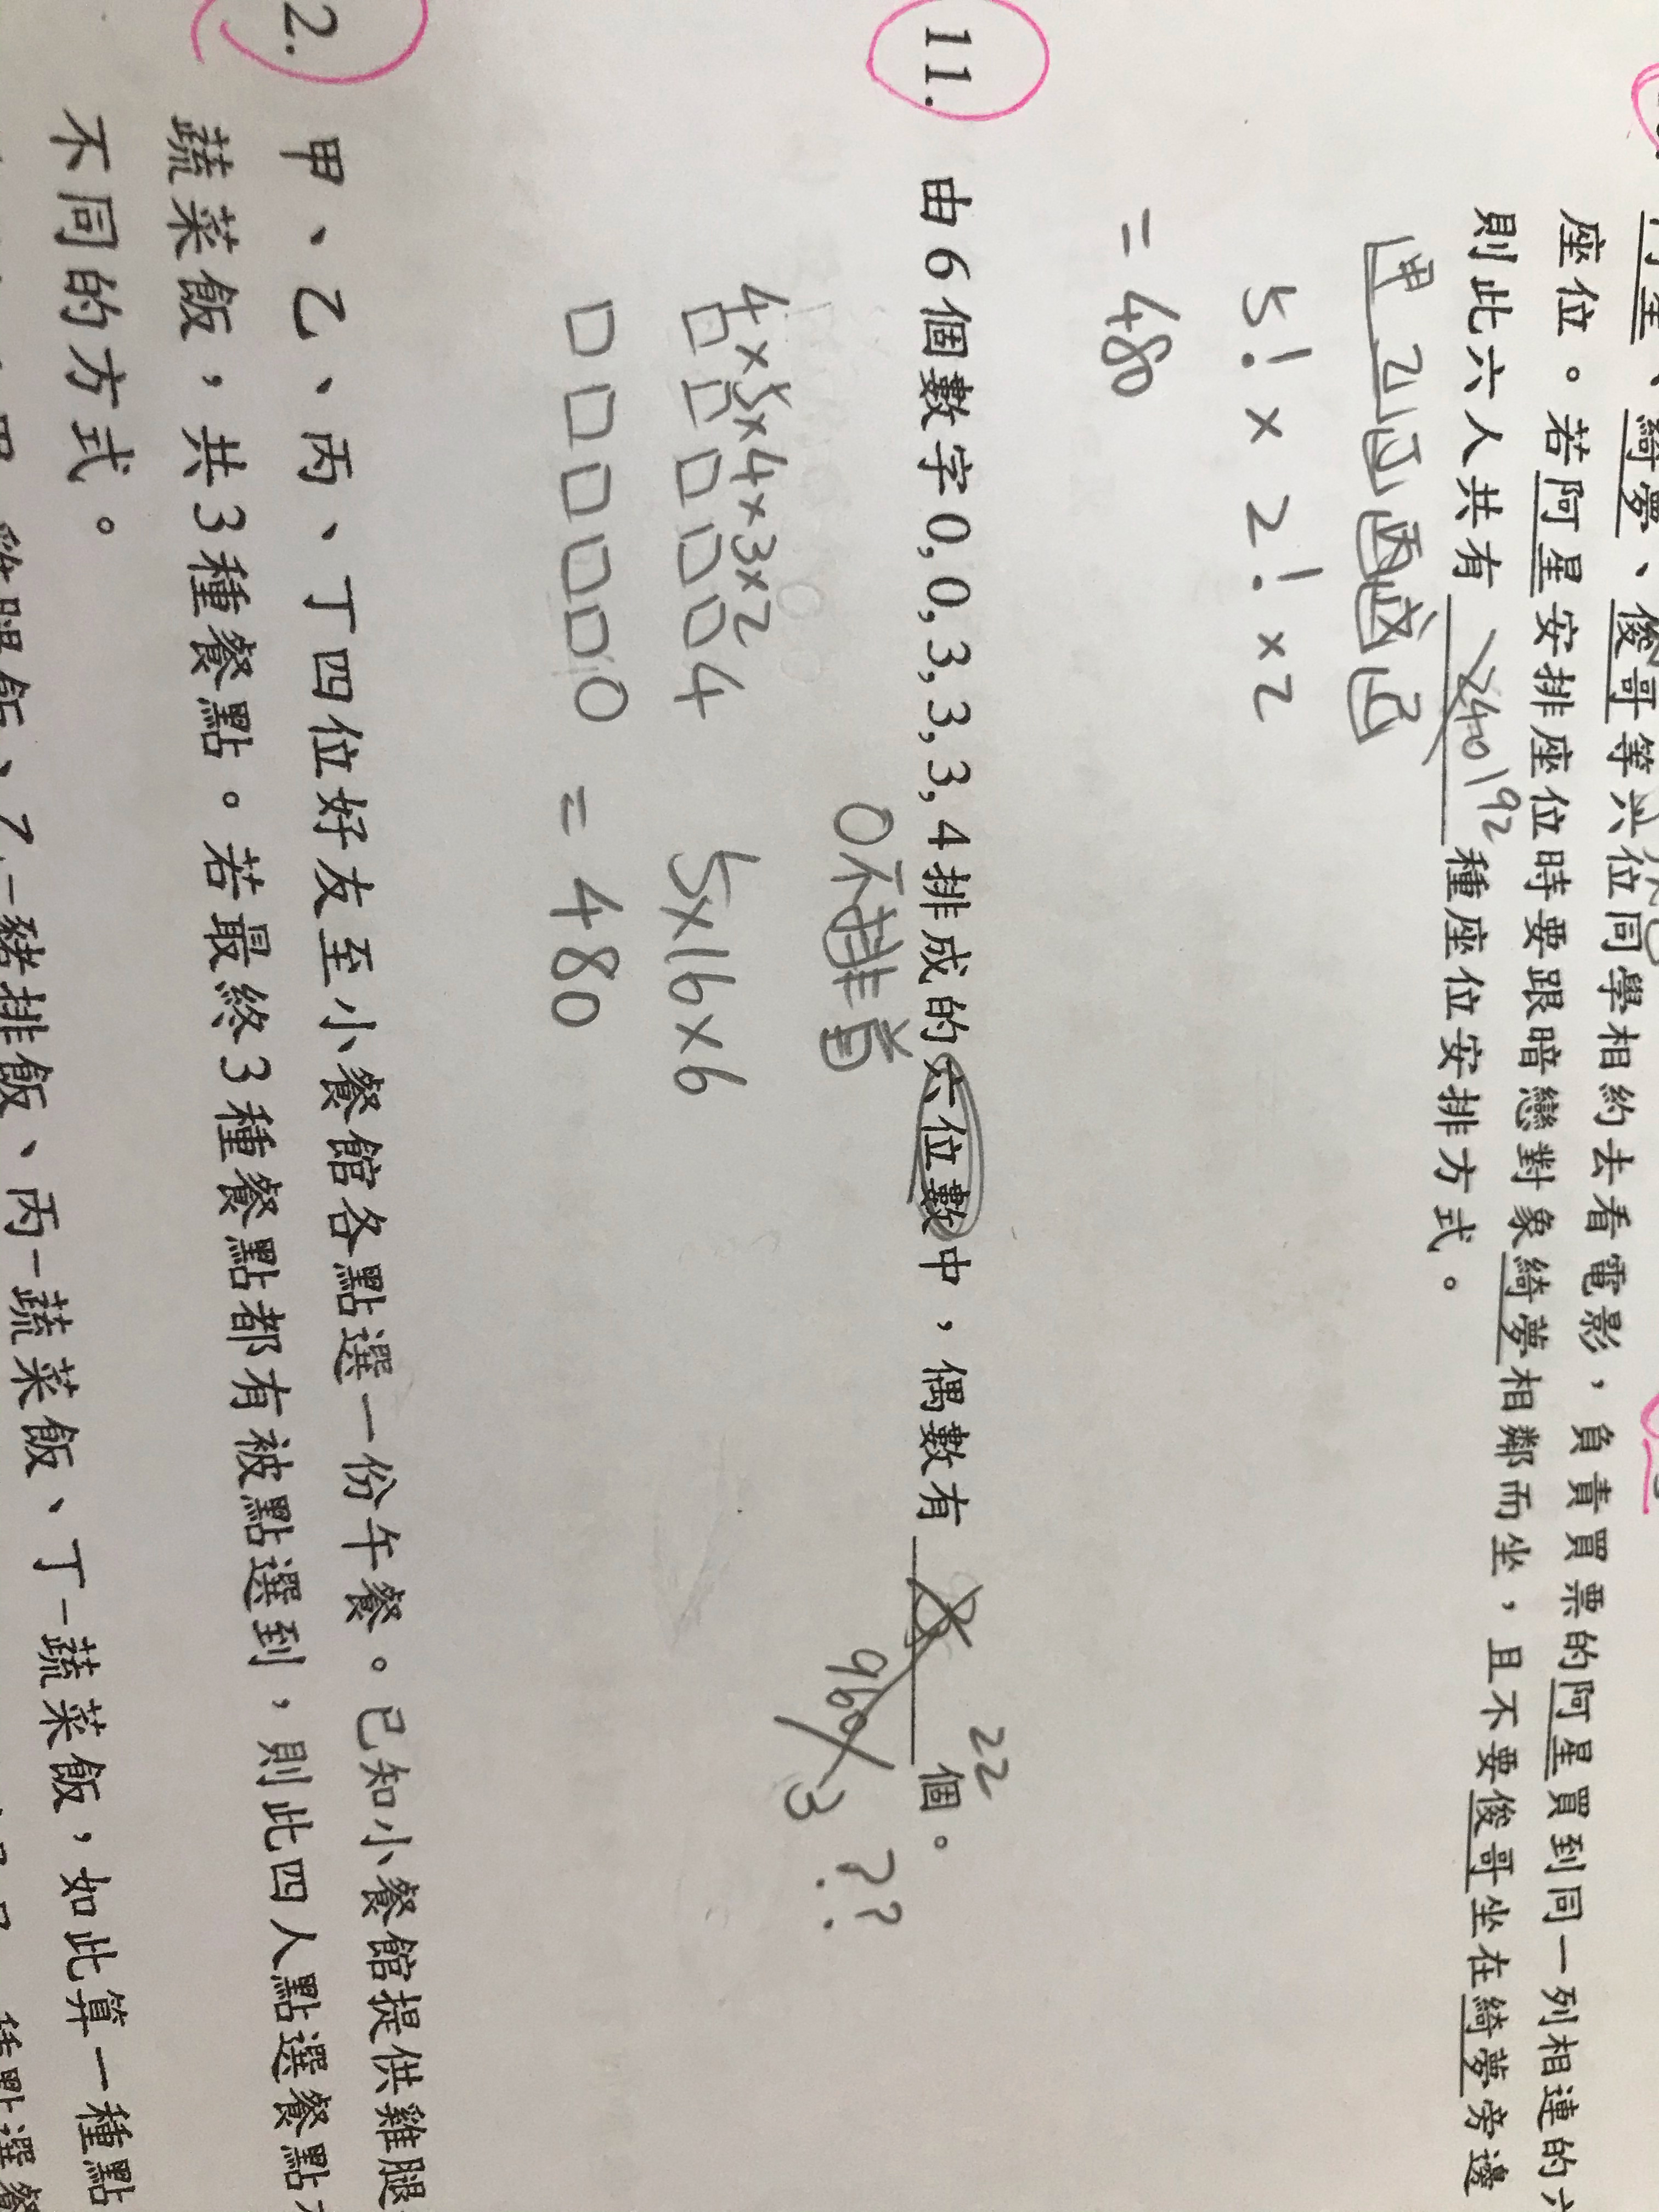 、綺夢、俊哥等六位同學相約去看電影，負責買票的阿星買到同一列相連的六
座位。若阿星安排座位時要跟暗戀對象綺夢相鄰而坐，且不要俊哥坐在綺夢旁邊
則此六人共有 240 192 種座位安排方式。
甲 乙 丙
5! × 2! × 2
= 480
11. 由6個數字0, 0, 3, 3, 3, 4排成的六位數中，偶數有 22 個。
0不排首
960 3 ??
4×5×4×3×2
□□□□□4 5×16×6
□□□□□0 = 480
2. 甲、乙、丙、丁四位好友至小餐館各點選一份午餐。已知小餐館提供雞腿
蔬菜飯，共3種餐點。若最終3種餐點都有被點選到，則此四人點選餐點
不同的方式。
雞腿飯、乙-豬排飯、丙-蔬菜飯、丁-蔬菜飯，如此算一種點